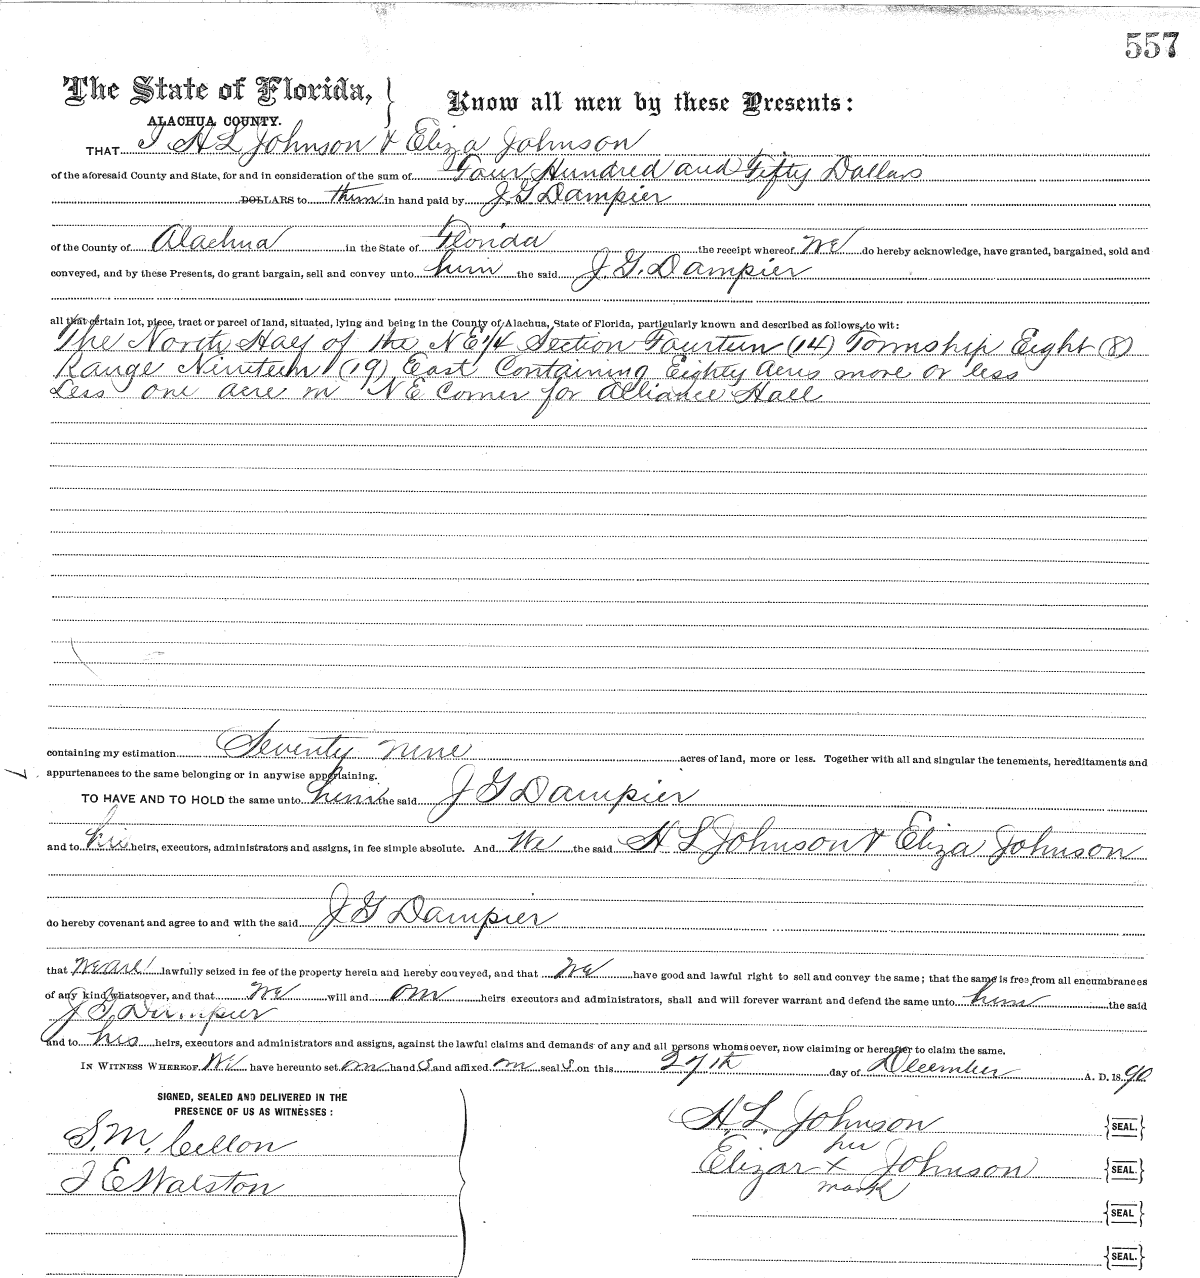 557
The State of Florida,
ALACHUA COUNTY.
Know all men by these Presents:
THAT I H L Johnson & Eliza Johnson
of the aforesaid County and State, for and in consideration of the sum of Four Hundred and Fifty Dollars
DOLLARS to them in hand paid by J G Dampier
of the County of Alachua in the State of Florida the receipt whereof We do hereby acknowledge, have granted, bargained, sold and
conveyed, and by these Presents, do grant bargain, sell and convey unto him the said J. G. Dampier
all that certain lot, piece, tract or parcel of land, situated, lying and being in the County of Alachua, State of Florida, particularly known and described as follows, to wit:
The North Half of the NE 1/4 Section Fourteen (14) Township Eight (8)
Range Nineteen (19) East Containing Eighty Acres more or less
Less one acre in NE Corner for Alliance Hall
containing my estimation Seventy nine acres of land, more or less. Together with all and singular the tenements, hereditaments and
appurtenances to the same belonging or in anywise appertaining.
TO HAVE AND TO HOLD the same unto him the said J G Dampier
and to his heirs, executors, administrators and assigns, in fee simple absolute. And We the said H L Johnson & Eliza Johnson
do hereby covenant and agree to and with the said J G Dampier
that we are lawfully seized in fee of the property herein and hereby conveyed, and that We have good and lawful right to sell and convey the same; that the same is free from all encumbrances
of any kind whatsoever, and that We will and our heirs executors and administrators, shall and will forever warrant and defend the same unto him the said
J G Dampier
and to his heirs, executors and administrators and assigns, against the lawful claims and demands of any and all persons whomsoever, now claiming or hereafter to claim the same.
IN WITNESS WHEREOF We have hereunto set our hand s and affixed our seal s on this 27th day of December A. D. 1890
SIGNED, SEALED AND DELIVERED IN THE
PRESENCE OF US AS WITNESSES:
S. M. Cellon
J E Walston
H. L. Johnson SEAL.
her
Elizar x Johnson SEAL.
mark
SEAL.
SEAL.